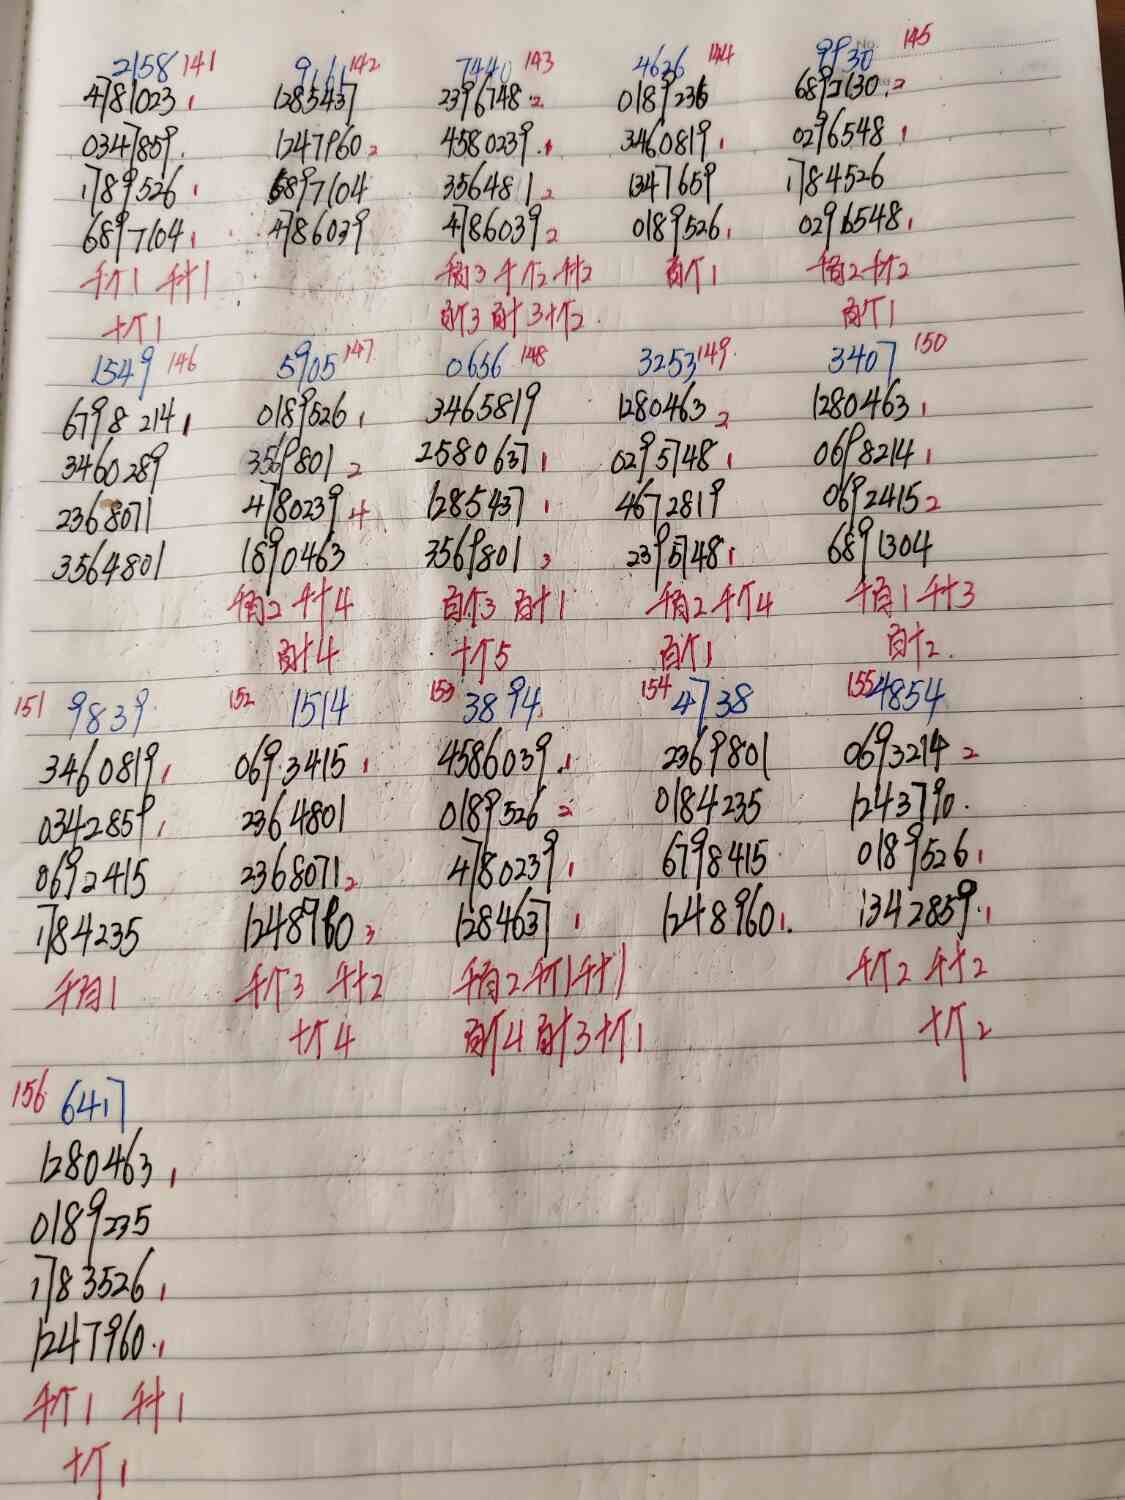 2158 141 9161 142 7440 143 4626 144 9930 145
4781023 1 1285437 2396748 2 0189236 6897130 2
0347859 1247960 2 4580239 1 3460819 1 0296548 1
1789526 1 6897104 3564811 2 1347659 1784526
6897104 1 4786039 4786039 2 0189526 1 0296548 1
千个1 千十1 千百3 千个2 千十2 百个1 千百2 千个2
十个1 百个3 百十3 十个2 百个1
1549 146 5905 147 0656 148 3253 149 3407 150
6798214 1 0189526 1 3465819 1280463 2 1280463 1
3460289 3569801 2 2580637 1 0295748 1 0698214 1
2368071 4780239 4 1285437 1 4672819 0692415 2
3564801 1890463 3569801 3 2395748 1 6891304
千百2 千十4 百个3 百十1 千百2 千个4 千百1 千十3
百十4 十个5 百个1 百十2
151 9839 152 1514 153 3894 154 4738 155 4854
3460819 1 0693415 1 4586039 1 2369801 0693214 2
0342859 1 2364801 0189526 2 0184235 1243790
0692415 2368071 2 4780239 1 6798415 0189526 1
1784235 1248760 3 1284637 1 1248960 1 1342859 1
千百1 千个3 千十2 千百2 千个1 千十1 千个2 千十2
十个4 百个4 百十3 十个1 十个2
156 6417
1280463 1
0189235
1783526 1
1247960 1
千个1 千十1
十个1